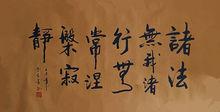 諸法
無我諸
行無
常涅
槃寂
靜